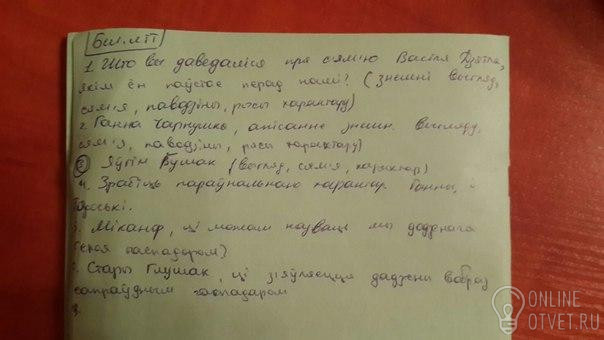 Бел.літ
1. Што вы даведаліся пра сям'ю Васіля Дзятла,
якім ён паўстае перад намі? (знешні выгляд,
сям'я, паводзіны, рысы характару)
2. Ганна Чарнушка, апісанне знешн. выгляду,
сям'я, паводзіны, рысы характару)
3 Яўхім Глушак (выгляд, сям'я, характар)
4. Зрабіць параўнальную характар. Ганны, і
Хадоські.
5. Міканор, ці можам назваць мы дадзенага
героя гаспадаром?
6. Стары Глушак, ці з'яўляецца дадзены вобраз
сапраўдным гаспадаром
ONLINE
OTVET.RU